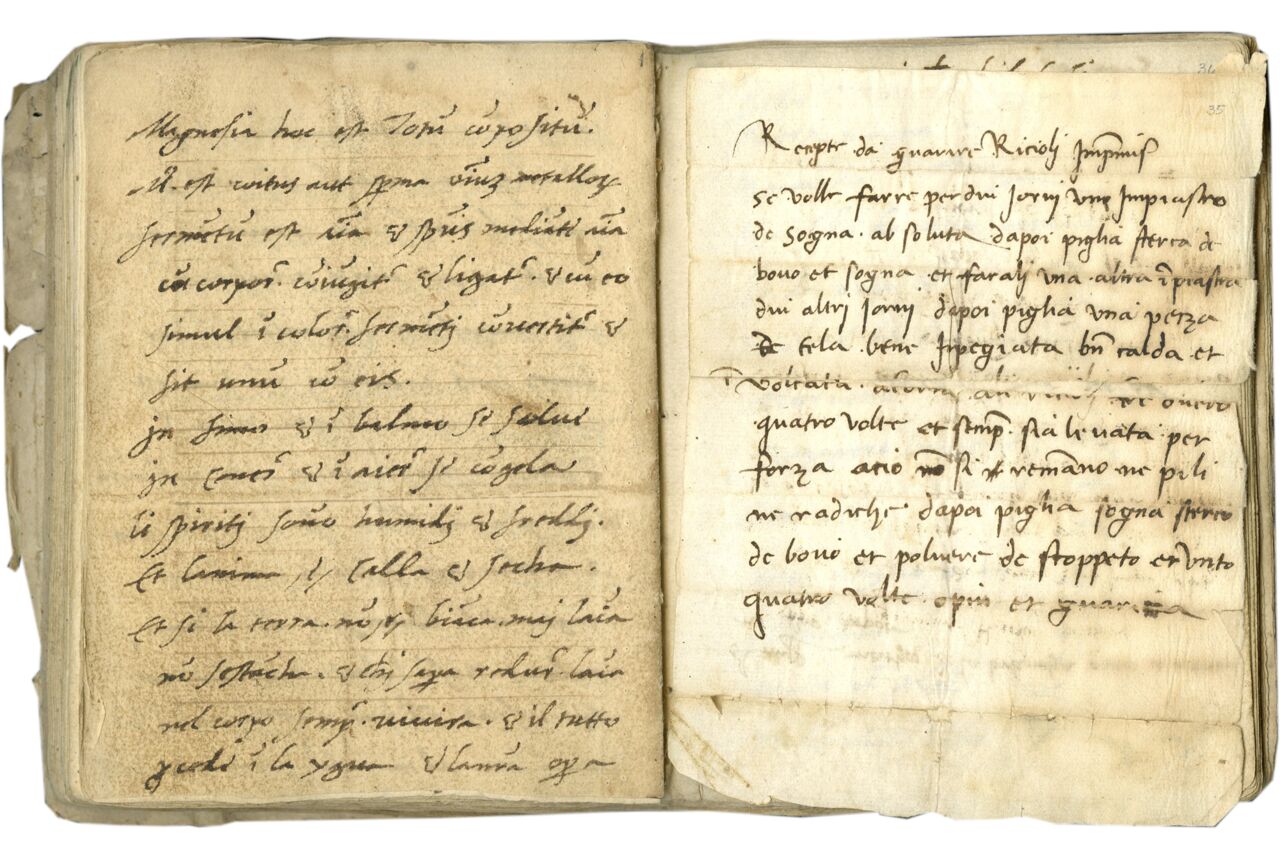 Magnesia hoc est Totũ cõpositũ.
M. est coitus aut sperma oĩuz metallor
fermẽtũ est aĩa & spũs mediãte aĩa
cũ corpor̃ cõiũgitr̃ & ligatr̃ . & cũ eo
simul ĩ color̃ fermẽti cõvertitr̃ &
fit unũ cũ eis.
in fimo & ĩ balneo se solve
in cener̃ & ĩ aier̃ se cõgela
li spiriti sono humidi & freddi.
Et lanima, è, calla & secha.
Et si la terra nõ è biãca mai laĩa
nõ sestacha. & chi sapa redur laĩa
nel corpo semp̃ . vivira . & il tutto
&lanr̃a opa
34
35
Recepte da guarire Ricioli Imp̃mis
se volle farre per dui Jorni uno Impiastro
de Sogna . absoluta dapoi piglia sterca de
bovo et sogna et farali una altra ĩpiastra
dui altri Jorni dapoi piglia una pezza
de tela . bene Inpegiata bñ calda et
voltata
overo
quatro volte et semp̃ . sia levata per
forza acio nõ si remãno ne pili
ne radiche dapoi piglia sogna sterco
de bovo et polvere de stoppeto et unto
quatro volte opiu et guarira